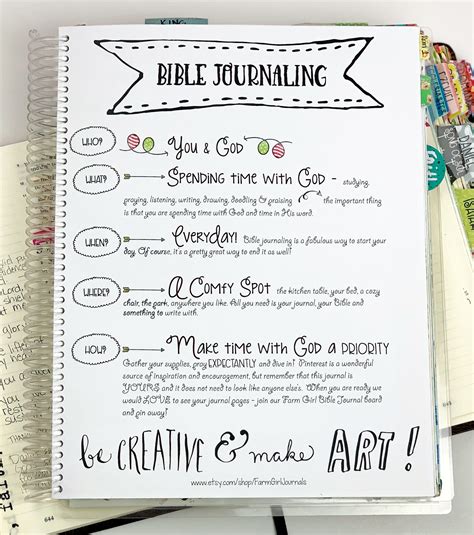 BIBLE JOURNALING
WHO? You & God
WHAT? Spending time with God - studying,
praying, listening, writing, drawing, doodling & praising the important thing
is that you are spending time with God and time in His word.
WHEN? Everyday! Bible journaling is a fabulous way to start your
day. Of course, it's a pretty great way to end it as well!
WHERE? A Comfy Spot the kitchen table, your bed, a cozy
chair, the park, anywhere you like. All you need is your journal, your Bible and
something to write with.
HOW? Make time with God a priority
Gather your supplies, pray EXPECTANTLY and dive in! Pinterest is a wonderful
source of inspiration and encouragement, but remember that this journal is
YOURS and it does not need to look like anyone else's. When you are ready we
would LOVE to see your journal pages - join our Farm Girl Bible Journal board
and pin away!
be CREATIVE & make ART!
www.etsy.com/shop/FarmGirlJournals
644